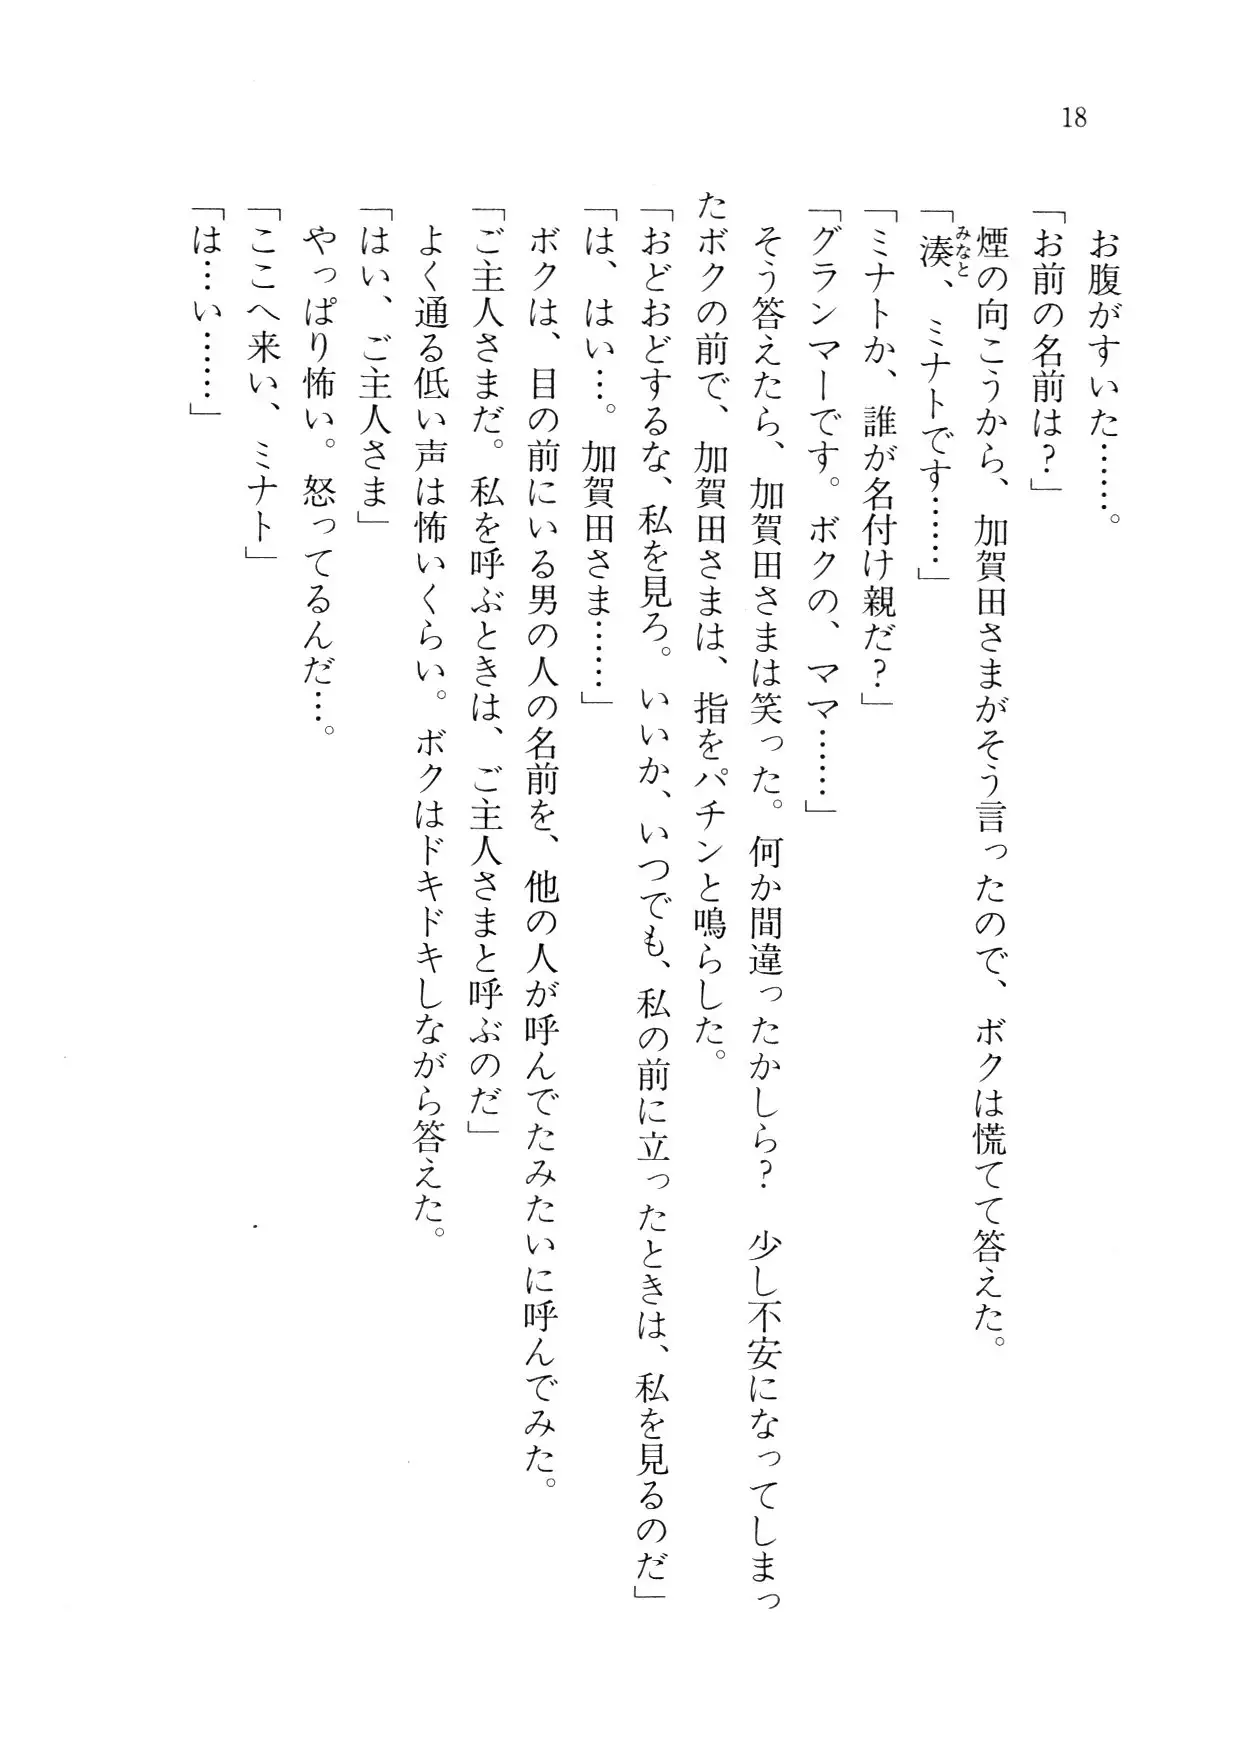 18
お腹がすいた……。
「お前の名前は?」
煙の向こうから、加賀田さまがそう言ったので、ボクは慌てて答えた。
「湊、ミナトです……」
みなと
「ミナトか、誰が名付け親だ?」
「グランマーです。ボクの、ママ……」
そう答えたら、加賀田さまは笑った。何か間違ったかしら? 少し不安になってしまっ
たボクの前で、加賀田さまは、指をパチンと鳴らした。
「おどおどするな、私を見ろ。いいか、いつでも、私の前に立ったときは、私を見るのだ」
「は、はい…。加賀田さま……」
ボクは、目の前にいる男の人の名前を、他の人が呼んでたみたいに呼んでみた。
「ご主人さまだ。私を呼ぶときは、ご主人さまと呼ぶのだ」
よく通る低い声は怖いくらい。ボクはドキドキしながら答えた。
「はい、ご主人さま」
やっぱり怖い。怒ってるんだ…。
「ここへ来い、ミナト」
「は…い……」